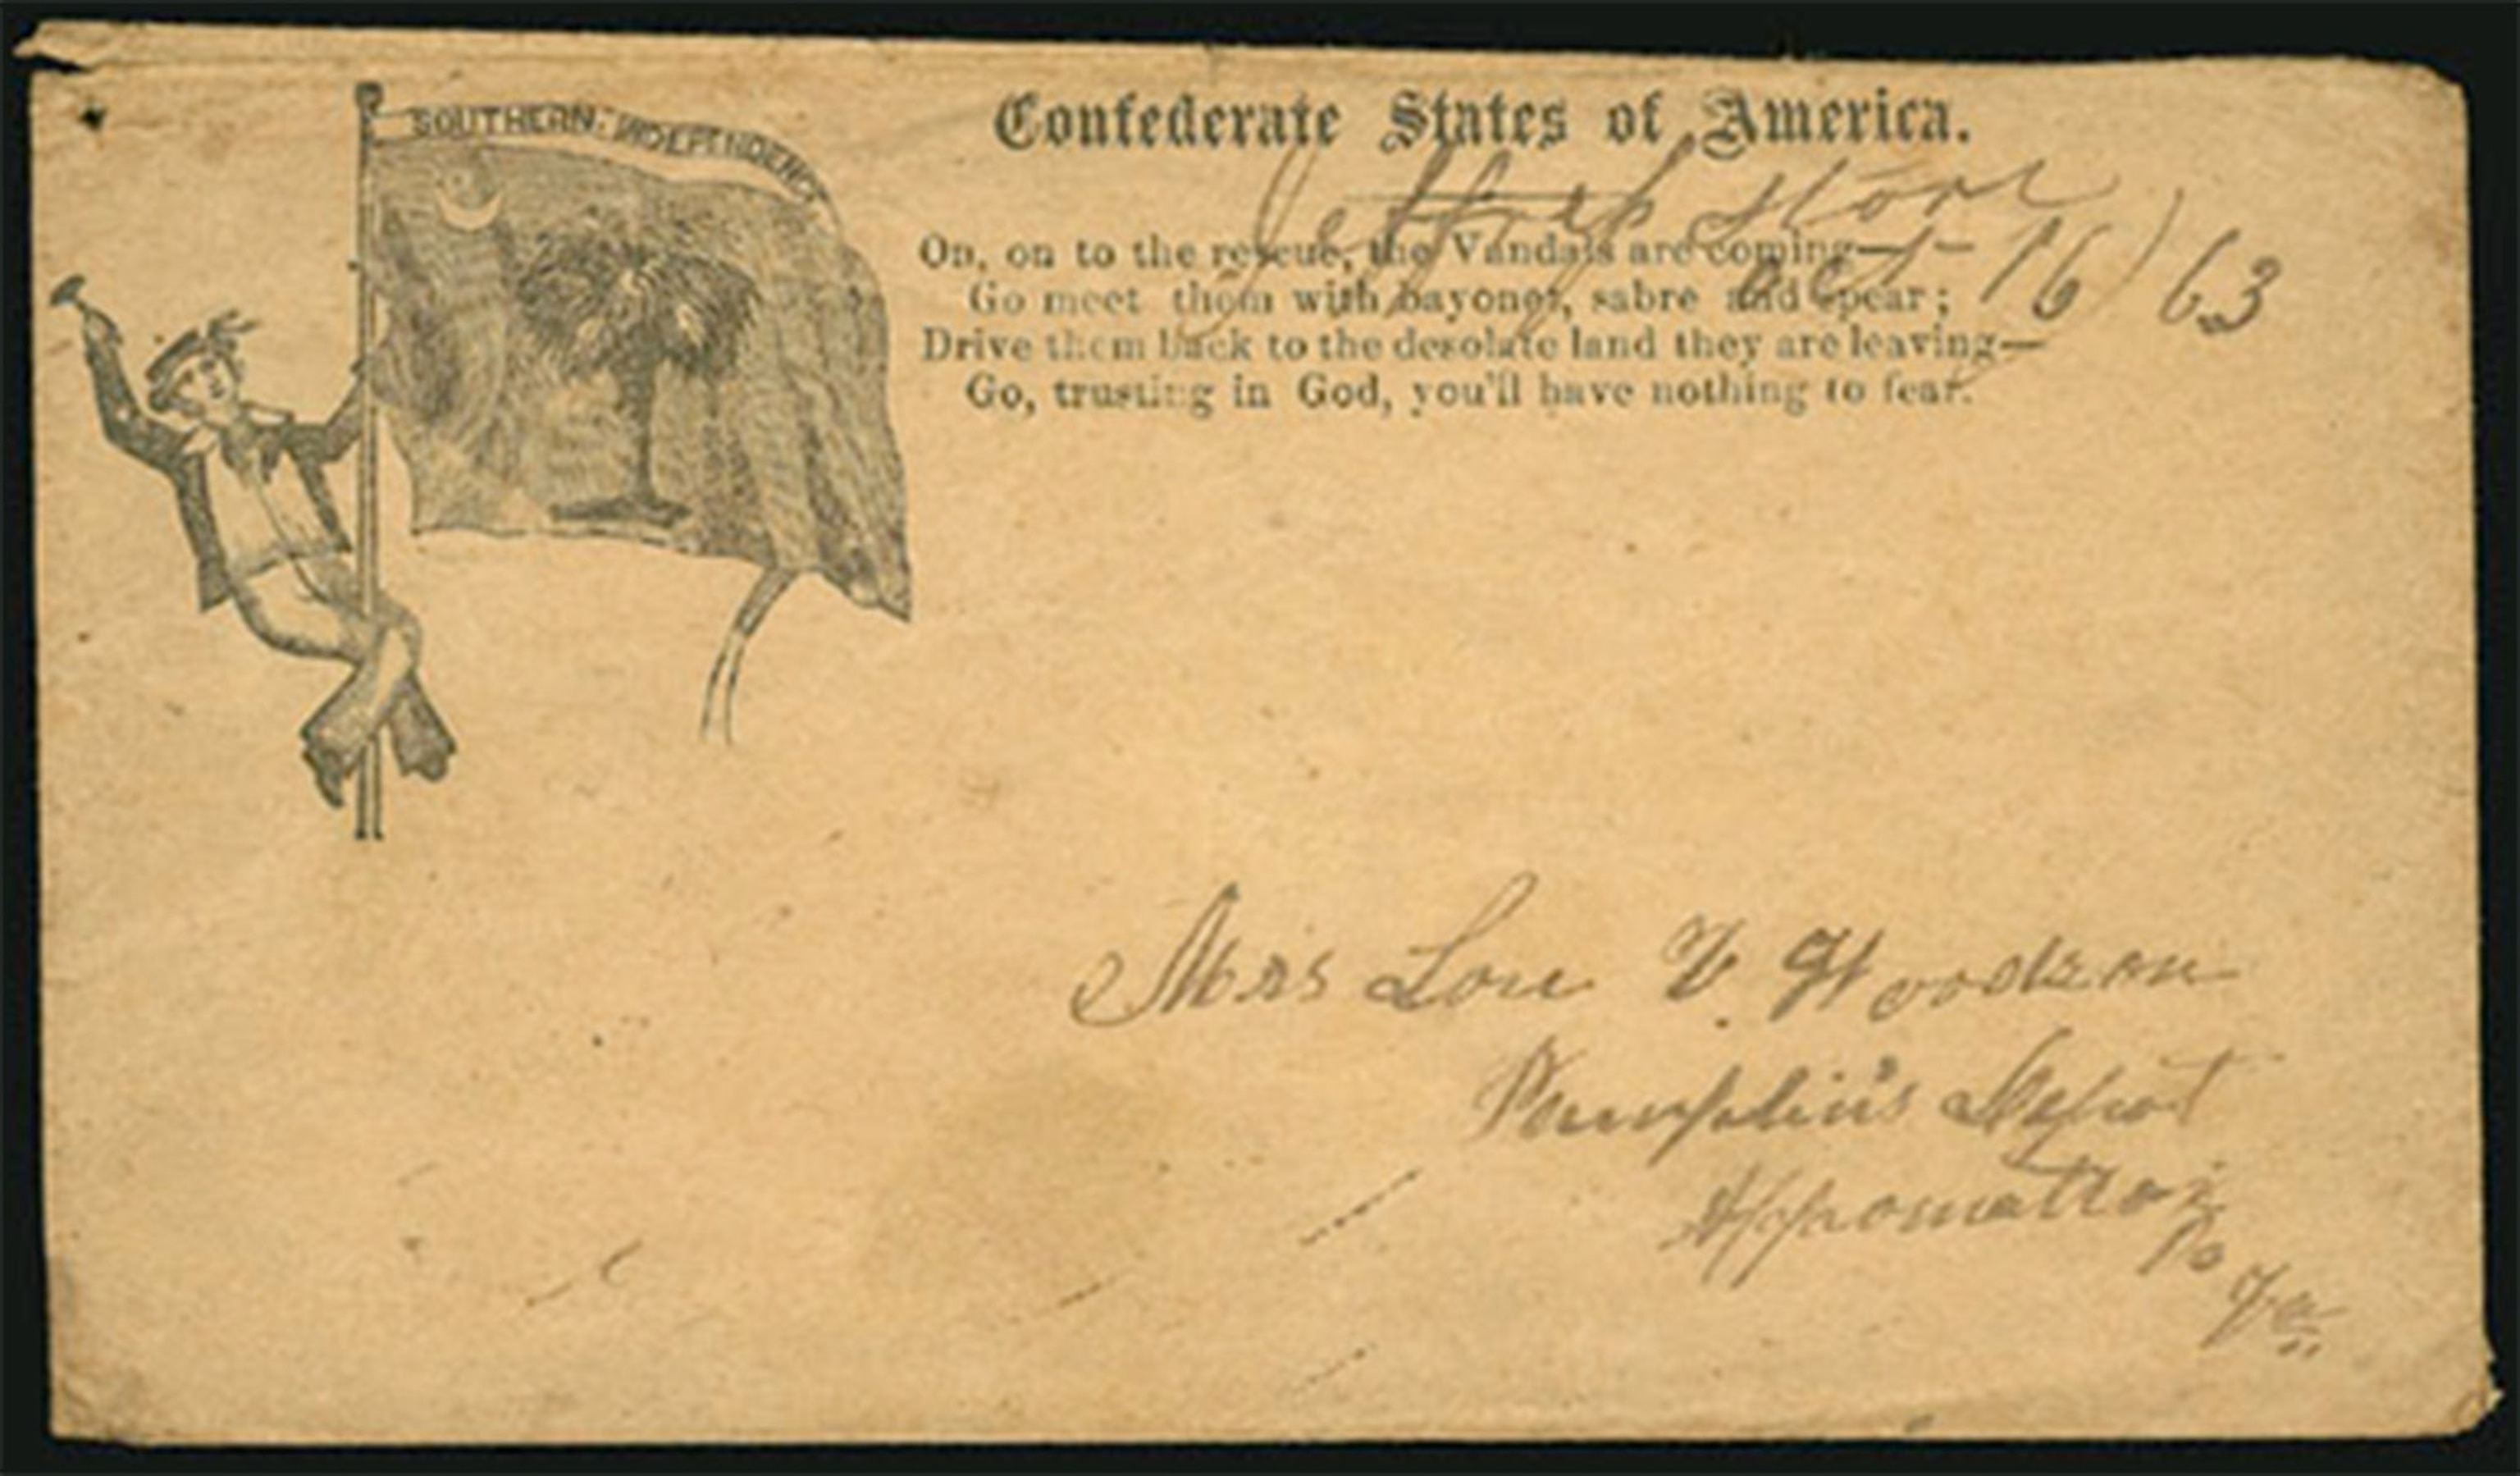 SOUTHERN INDEPENDENCE
Confederate States of America.
Store
Oct 16 / 63
On, on to the rescue, the Vandals are coming—
Go meet them with bayonet, sabre and spear;
Drive them back to the desolate land they are leaving—
Go, trusting in God, you'll have nothing to fear.
Mrs Lou V. Woodson
Pamplin's Depot
Appomattox
Co
Va